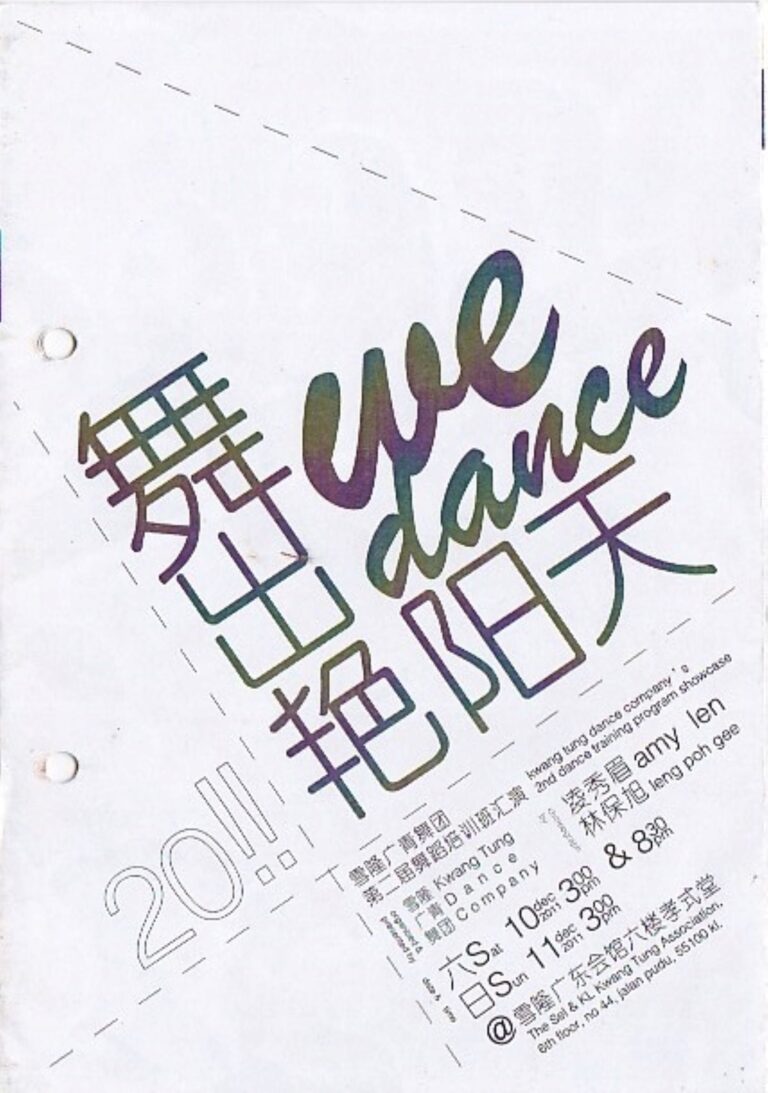 we
dance
舞出艳阳天
20!!
雪隆广青舞团
第二届舞蹈培训班汇演
kwang tung dance company's
2nd dance training program showcase
organized &
presented by
雪隆 Kwang Tung
广青 Dance
舞团 Company
凌秀眉 amy len
林保旭 leng poh gee
date & time
六 Sat 10 dec 2011 3 00 pm & 8 30 pm
日 Sun 11 dec 2011 3 00 pm
@ 雪隆广东会馆六楼孝式堂
The Sel & KL Kwang Tung Association,
6th floor, no 44, jalan pudu, 55100 kl.